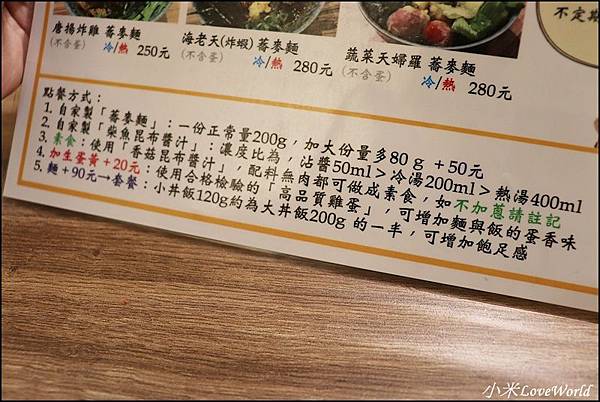 唐揚炸雞 蕎麥麵
(不含蛋)
冷/熱 250元
海老天(炸蝦) 蕎麥麵
(不含蛋)
冷/熱 280元
蔬菜天婦羅 蕎麥麵
(不含蛋)
冷/熱 280元
不定期
點餐方式：
1. 自家製「蕎麥麵」：一份正常量200g，加大份量多80g +50元
2. 自家製「柴魚昆布醬汁」：濃度比為，沾醬50ml＞冷湯200ml＞熱湯400ml
3. 素食：使用「香菇昆布醬汁」，配料無肉都可做成素食，如不加蔥請註記
4. 加生蛋黃+20元：使用合格檢驗的「高品質雞蛋」，可增加麵與飯的蛋香味
5. 麵+90元→套餐：小丼飯120g約為大丼飯200g 的一半，可增加飽足感
小米LoveWorld